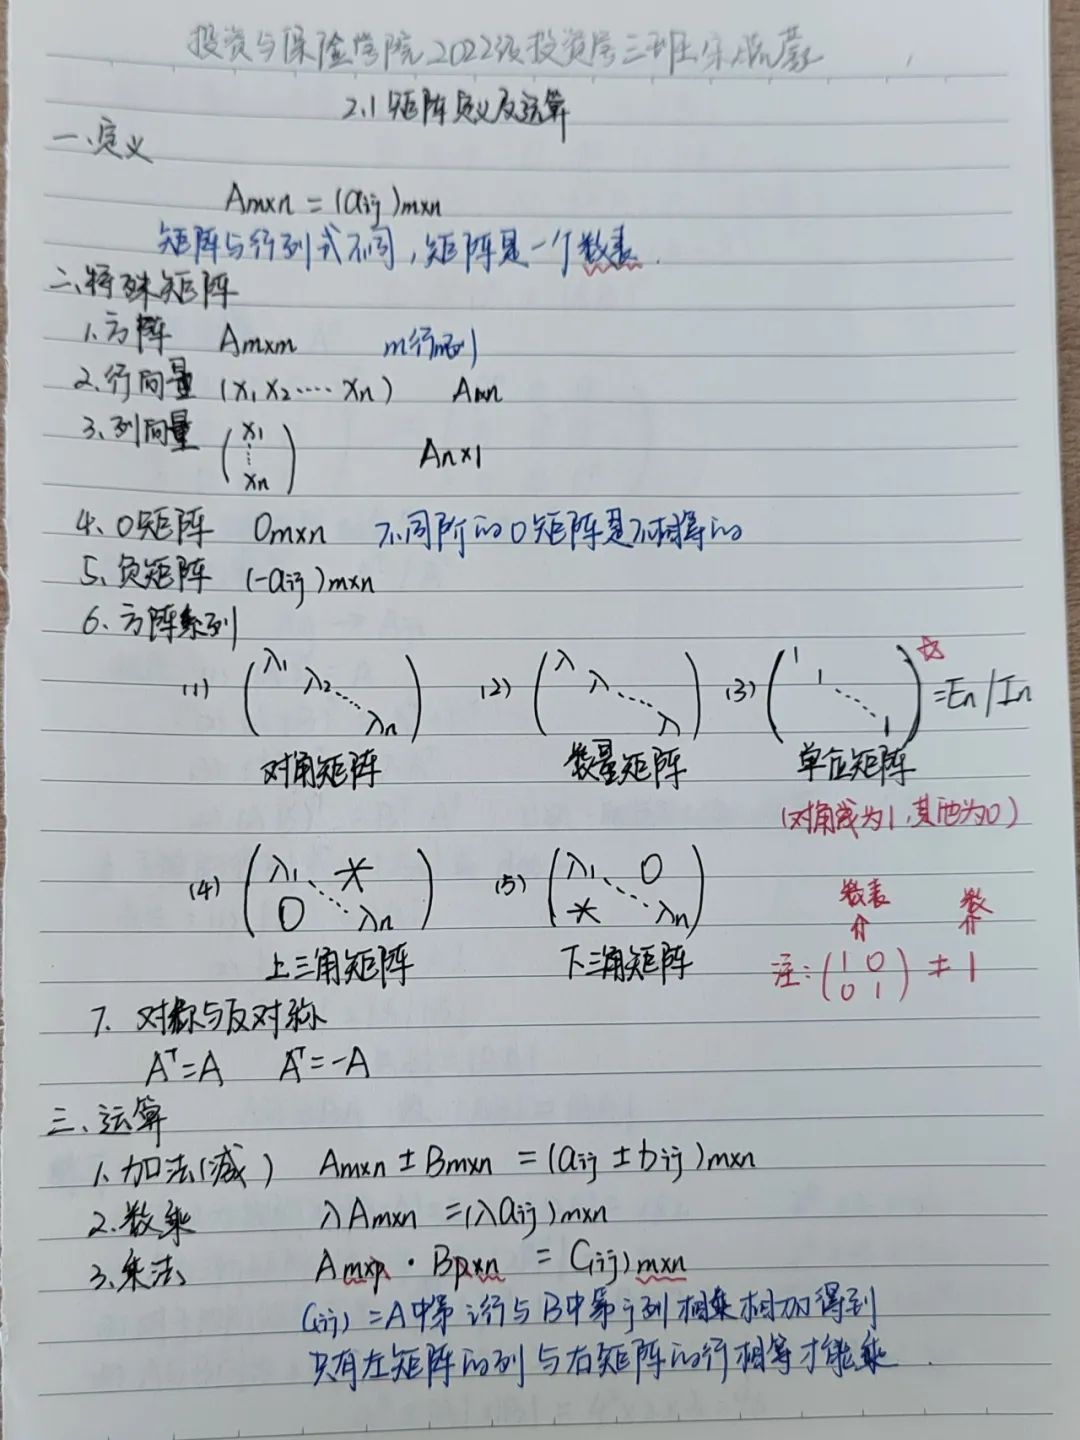 投资与保险学院2022级投资学三班宋
2.1 矩阵定义及运算
一、定义
Am×n = (aij)m×n
矩阵与行列式不同,矩阵是一个数表.
二、特殊矩阵
1、方阵 Am×m m行m列
2、行向量 (x1 x2 ····· xn) A1×n
3、列向量 (x1 ⋮ xn) An×1
4、0矩阵 0m×n 不同阶的0矩阵是不相等的
5、负矩阵 (-aij)m×n
6、方阵系列
(1) (λ1 λ2 ····· λn) (2) (λ λ ····· λ) (3) (1 1 ····· 1) ☆ = En / In
对角矩阵 数量矩阵 单位矩阵
(对角线为1,其他为0)
(4) (λ1 * 0 λn) (5) (λ1 0 * λn)
上三角矩阵 下三角矩阵
数表 数
⇑ ⇑
注: (1 0 0 1) ≠ 1
7、对称与反对称
Aᵀ=A Aᵀ=-A
三、运算
1、加法(减) Am×n ± Bm×n = (aij ± bij)m×n
2、数乘 λAm×n = (λaij)m×n
3、乘法 Am×p · Bp×n = C(ij)m×n
C(ij) = A中第i行与B中第j列相乘相加得到
只有左矩阵的列与右矩阵的行相等才能乘.